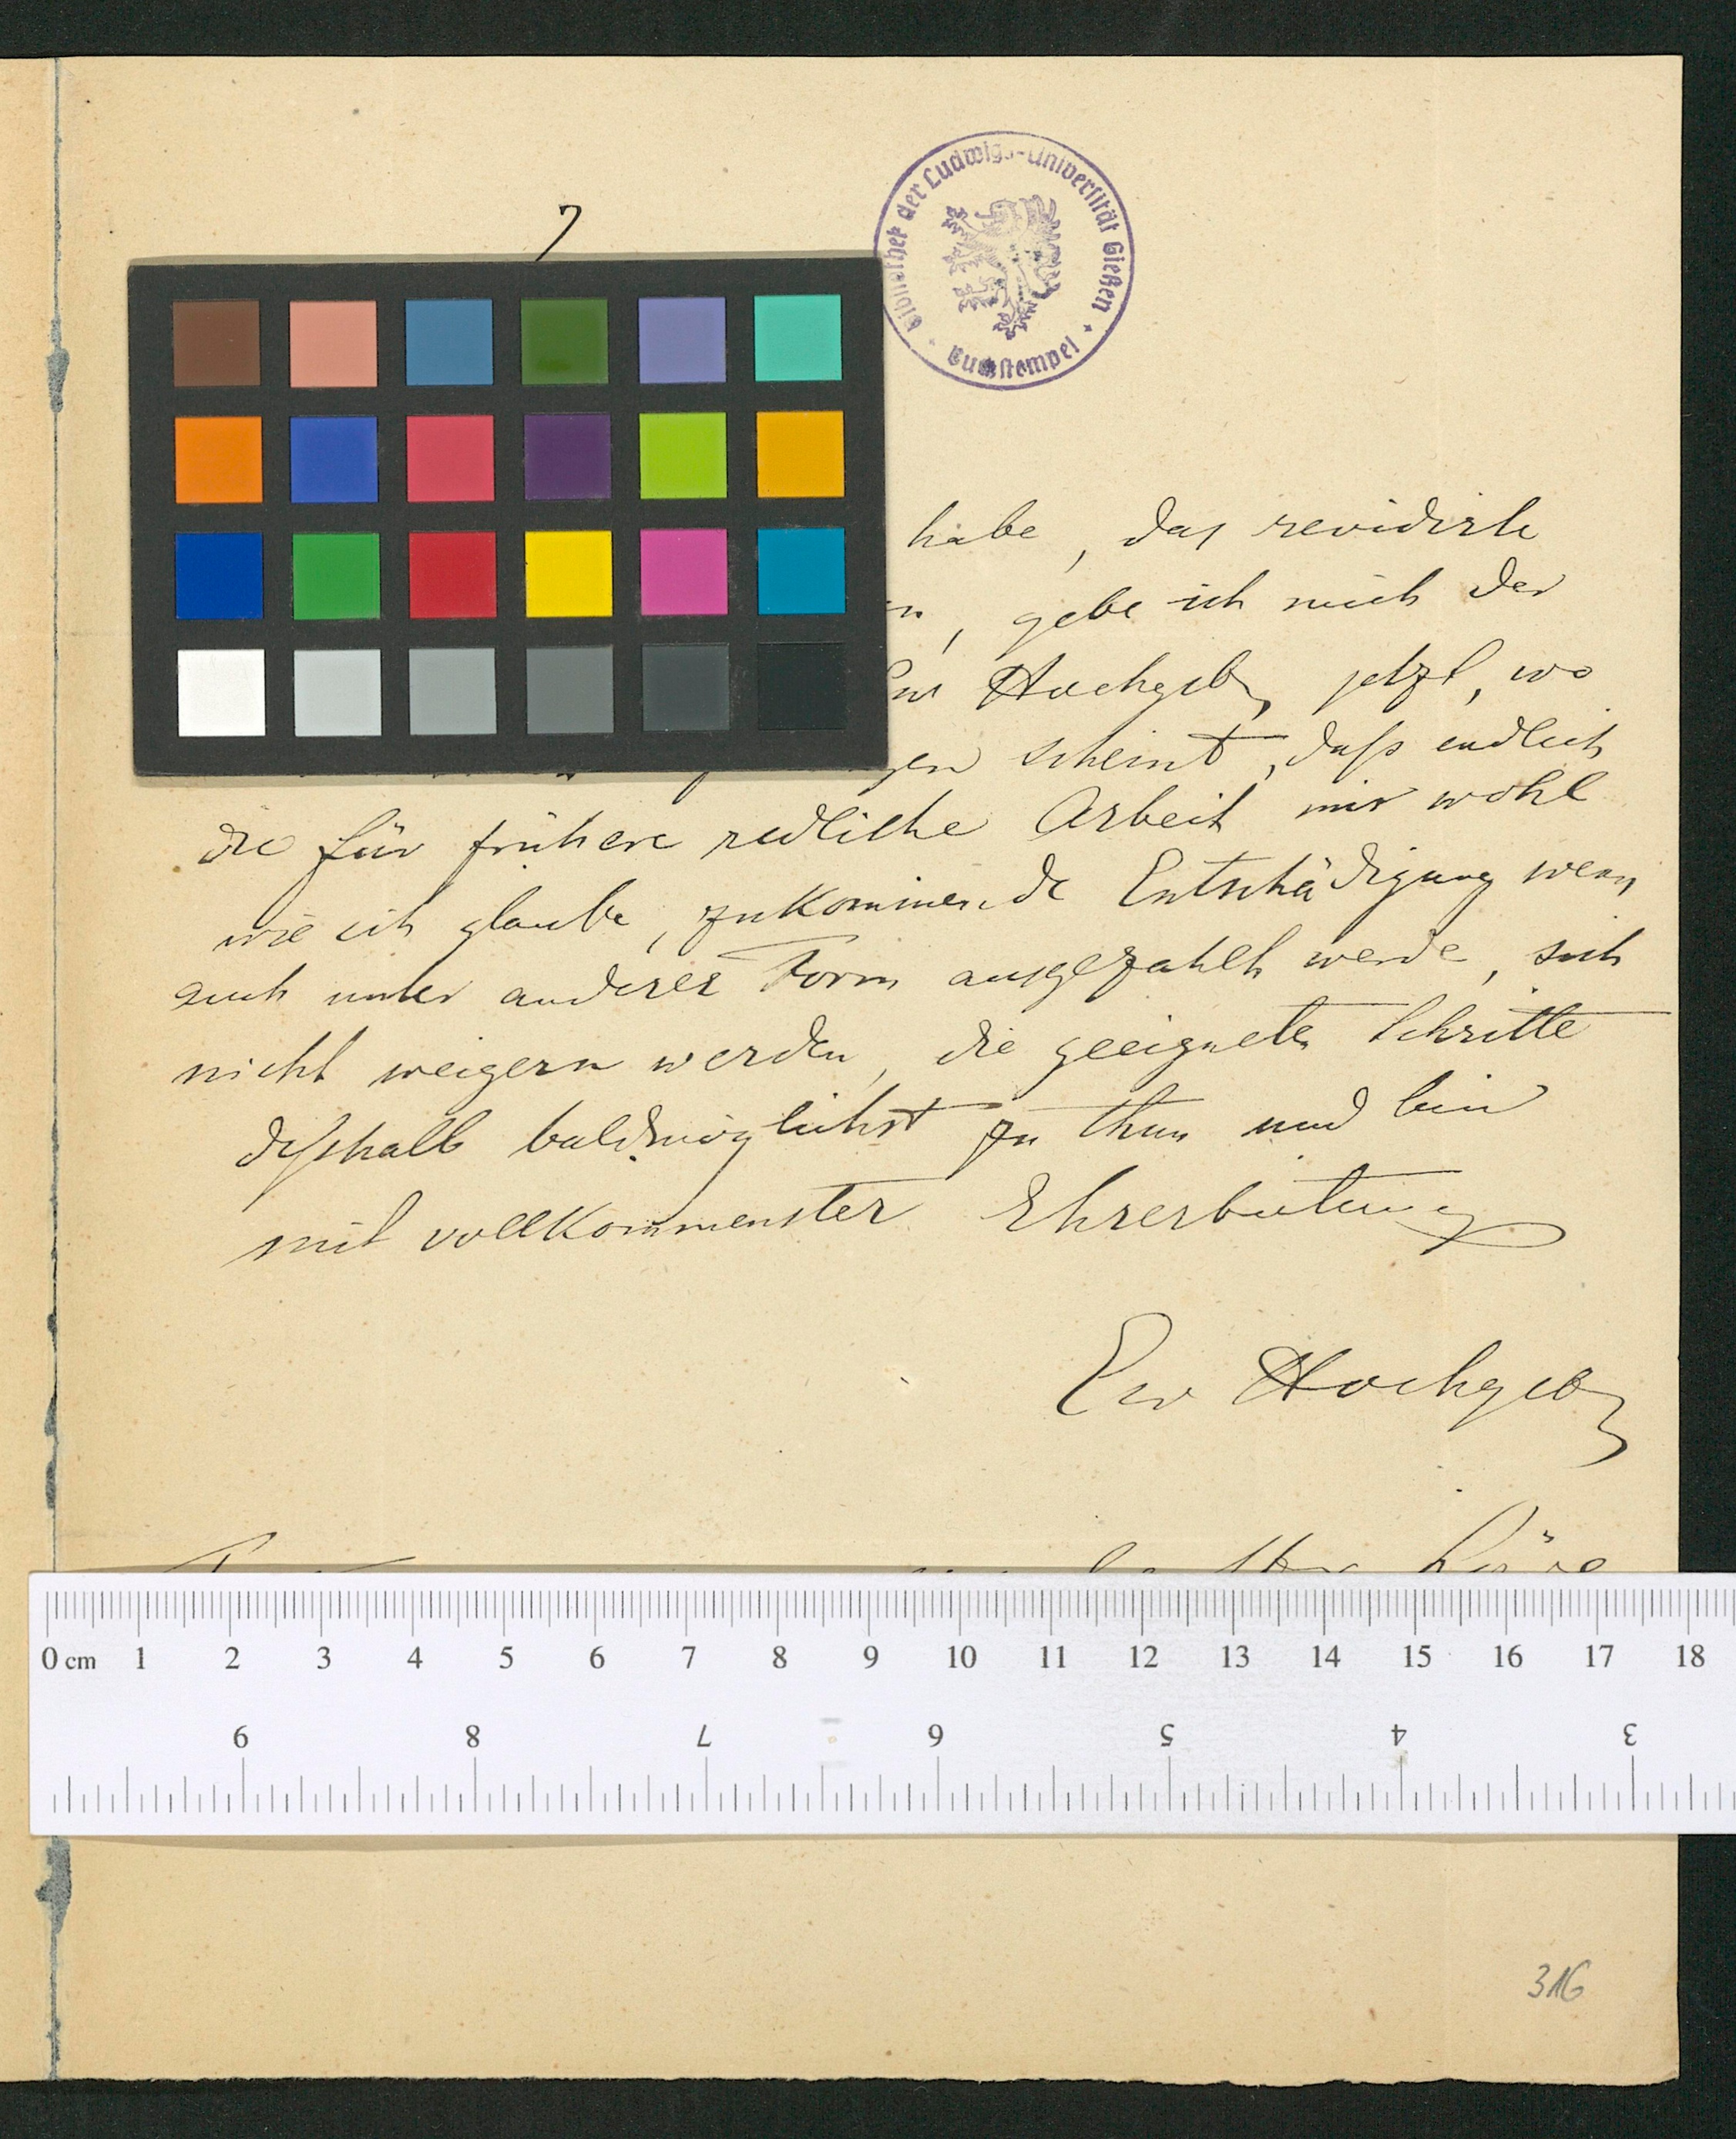 7
Bibliothek der Ludwigs-Universität Gießen
Buchstempel
habe, das revidirte
gebe ich mich der
Ew Hochgeb, jetzt, wo
scheint, daß endlich
die für frühere redliche Arbeit mir wohl
wie ich glaube, zukommende Entschädigung wenn
auch unter anderer Form ausgezahlt werde, sich
nicht weigern werden, die geeigneten Schritte
deßhalb baldmöglichst zu thun und bin
mit vollkommenster Ehrerbietung
Ew Hochgeb
0 cm 1 2 3 4 5 6 7 8 9 10 11 12 13 14 15 16 17 18
9 8 7 6 5 4 3
316